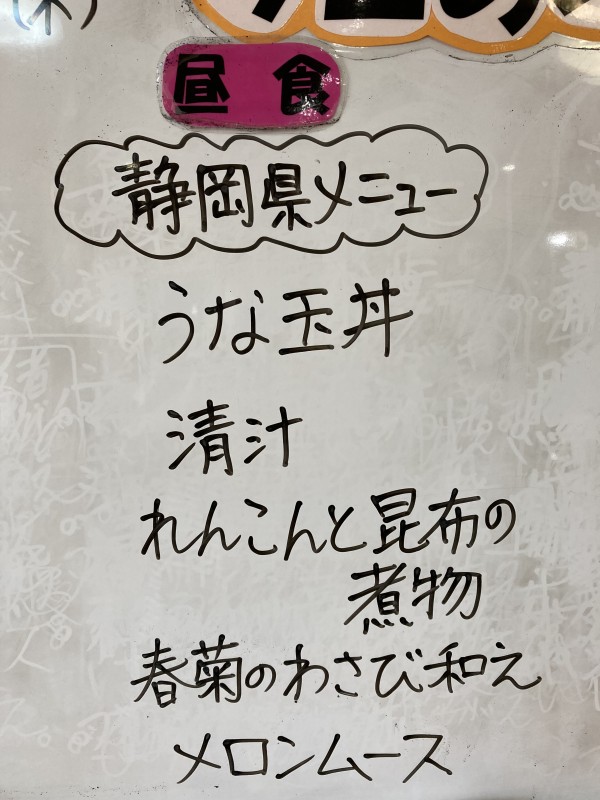 (木)
昼食
静岡県メニュー
うな玉丼
清汁
れんこんと昆布の
煮物
春菊のわさび和え
メロンムース